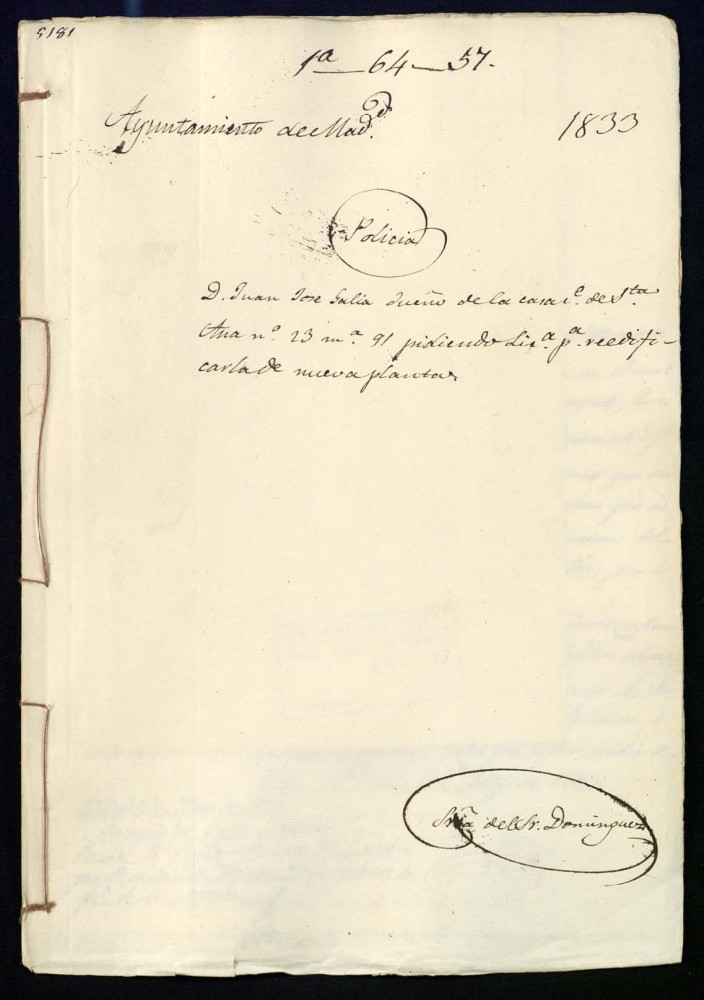 5181
1ª - 64 - 57.
Ayuntamiento de Madd. 1833
Policia
D. Juan Jose Galia dueño de la casa c.e de Sta
Ana nº. 23 m.ª 91 pidiendo Lic.ª p.ª reedifi-
carla de nueva planta.
Sría del Sr. Dominguez